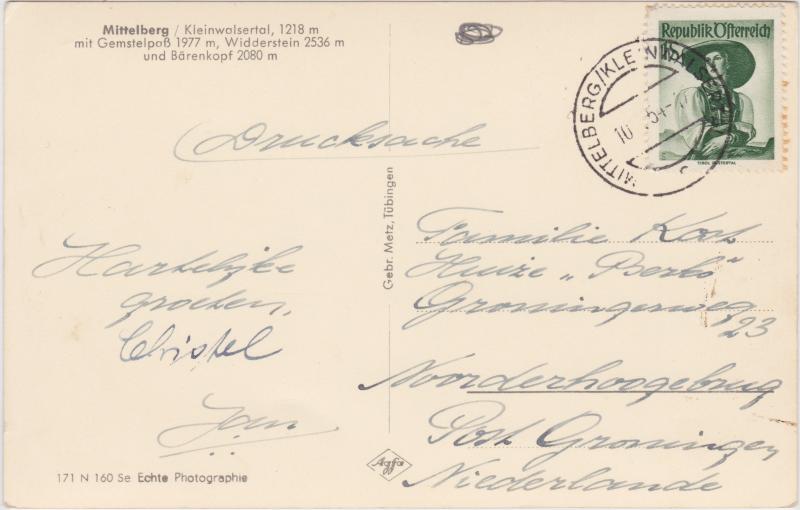 Mittelberg / Kleinwalsertal, 1218 m
mit Gemstelpaß 1977 m, Widderstein 2536 m
und Bärenkopf 2080 m
Republik Österreich
MITTELBERG/KLEINWALSERTAL
10. 54
Drucksache
Gebr. Metz, Tübingen
Hartelijke
groeten,
Christel
Jan
Familie Koot
Huize „Berko"
Groningerweg
23
Noorderhoogebrug
Post Groningen
Niederlande
Agfa
171 N 160 Se Echte Photographie